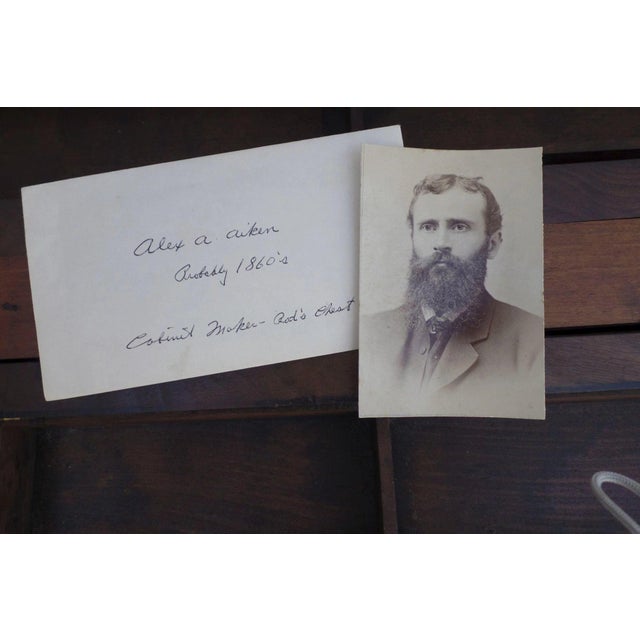 Alex A. Aiken
Probably 1860's
Cabinit Maker - Rod's Chest